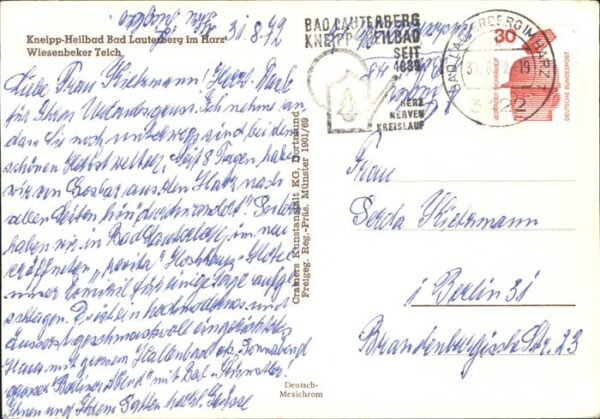 31.8.72
Kneipp-Heilbad Bad Lauterberg im Harz
Wiesenbeker Teich
Liebe Frau Kietzmann! Herzl. Dank
für Ihren Urlaubsgruss. Ich nehme an
dass Sie noch unterwegs sind bei dem
schönen Herbstwetter. Seit 8 Tagen haben
wir von Goslar aus den Harz nach
allen Seiten hin "durchwandelt".
haben wir in Bad Lauterberg im neu
eröffneten "revita" Hochhaus-Hotel
unser Domizil für einige Tage aufge-
schlagen. Ein hochmodernes und
äusserst geschmackvoll eingerichtetes
Haus mit grossem Hallenbad etc. Sonnabend
grosser "Berliner Abend" mit Berl. Künstler!
Ihnen und Ihrem Gatten herzl. Grüsse
Cramers Kunstanstalt KG, Dortmund
Freigeg. Reg.-Präs. Münster 1901/69
Deutsch-
Mexichrom
BAD LAUTERBERG
KNEIPP HEILBAD
SEIT
1839
HERZ
NERVEN
KREISLAUF
BAD LAUTERBERG IM HARZ 1
3422
30
JEDERZEIT SICHERHEIT
DEUTSCHE BUNDESPOST
Frau
Gerda Kietzmann
1 Berlin 31
Brandenburgische Str. 23